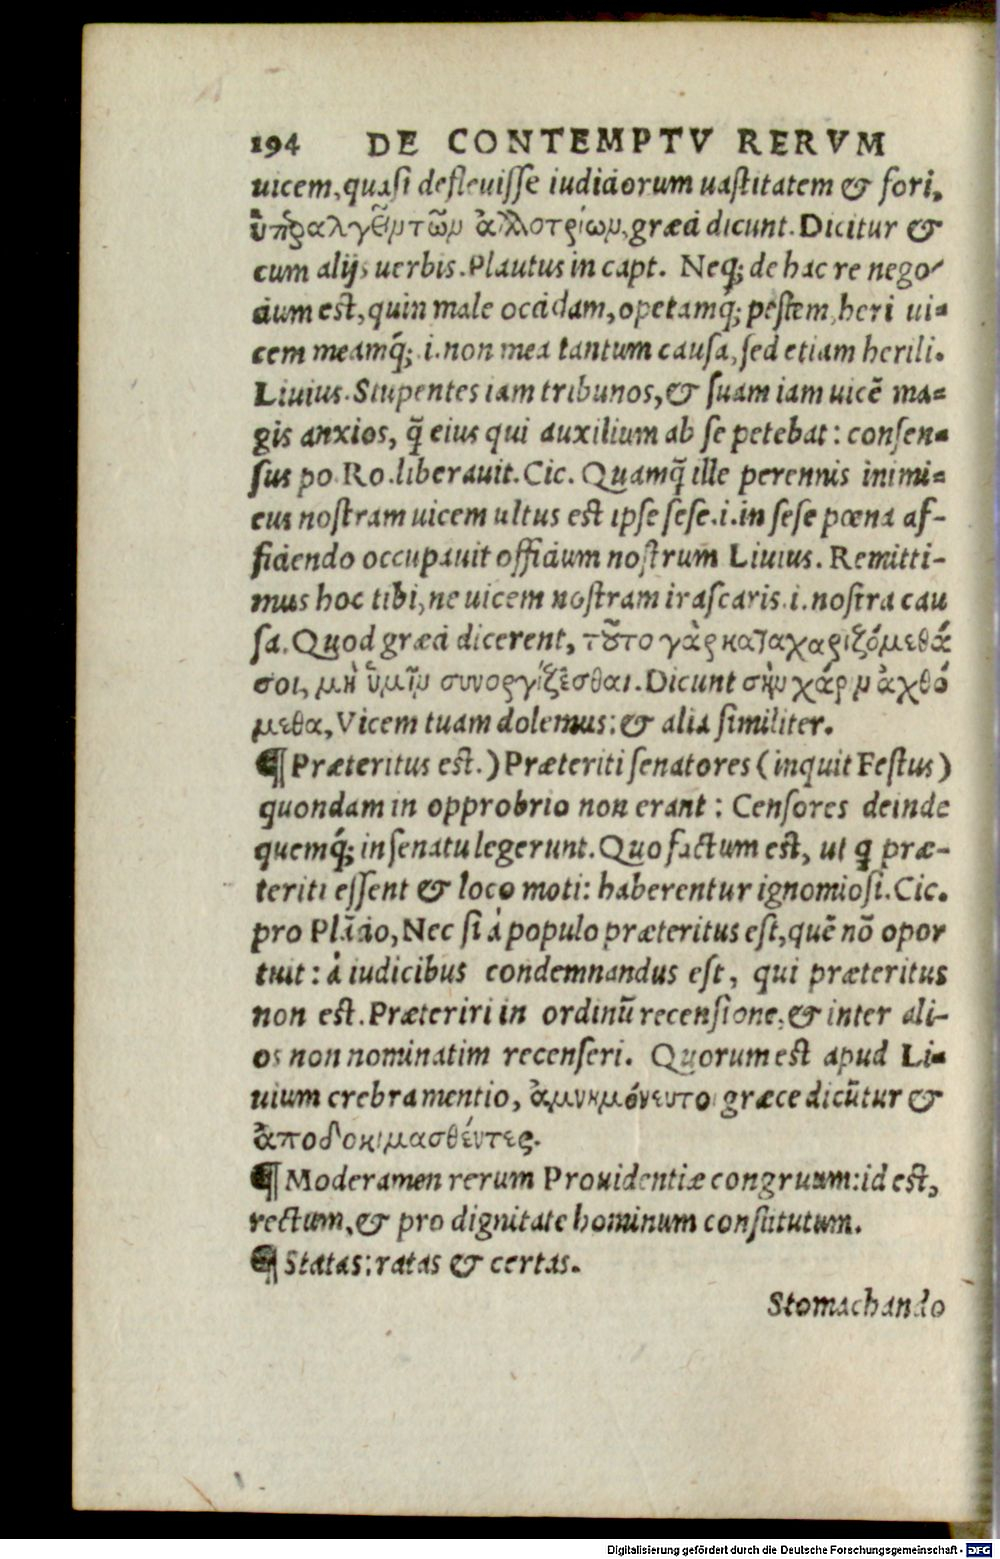 194 DE CONTEMPTV RERVM
uicem, quasi defleuisse iudiciorum uastitatem & fori,
ὑπεραλγεῖν τῶν ἀλλοτρίων, græci dicunt. Dicitur &
cum alijs uerbis. Plautus in capt. Neq; de hac re nego-
cium est, quin male occidam, opetamq́; pestem, heri ui-
cem meamq́; .i. non mea tantum causa, sed etiam herili.
Liuius. Stupentes iam tribunos, & suam iam uicē ma-
gis anxios, q̄ eius qui auxilium ab se petebat: consen-
sus po. Ro. liberauit. Cic. Quamq̄ ille perennis inimi-
cus nostram uicem ultus est ipse sese .i. in sese pœna af-
ficiendo occupauit officium nostrum Liuius. Remitti-
mus hoc tibi, ne uicem nostram irascaris .i. nostra cau
sa. Quod græci dicerent, τοῦτο γὰρ καταχαριζόμεθά
σοι, μὴ ὑμῖν συνοργίζεσθαι. Dicunt σὴν χάριν ἀχθό
μεθα, Vicem tuam dolemus: & alia similiter.
¶ Præteritus est.) Præteriti senatores (inquit Festus)
quondam in opprobrio non erant: Censores deinde
quemq́; in senatu legerunt. Quo factum est, ut q præ-
teriti essent & loco moti: haberentur ignomiosi. Cic.
pro Plācio, Nec si á populo præteritus est, quē nō opor
tuit: á iudicibus condemnandus est, qui præteritus
non est. Præteriri in ordinū recensione, & inter ali-
os non nominatim recenseri. Quorum est apud Li-
uium crebra mentio, ἀμνημόνευτοι græce dicūtur &
ἀποδοκιμασθέντες.
¶ Moderamen rerum Prouidentiæ congruum: id est,
rectum, & pro dignitate hominum constitutum.
¶ Statas: ratas & certas.
Stomachando
Digitalisierung gefördert durch die Deutsche Forschungsgemeinschaft - DFG